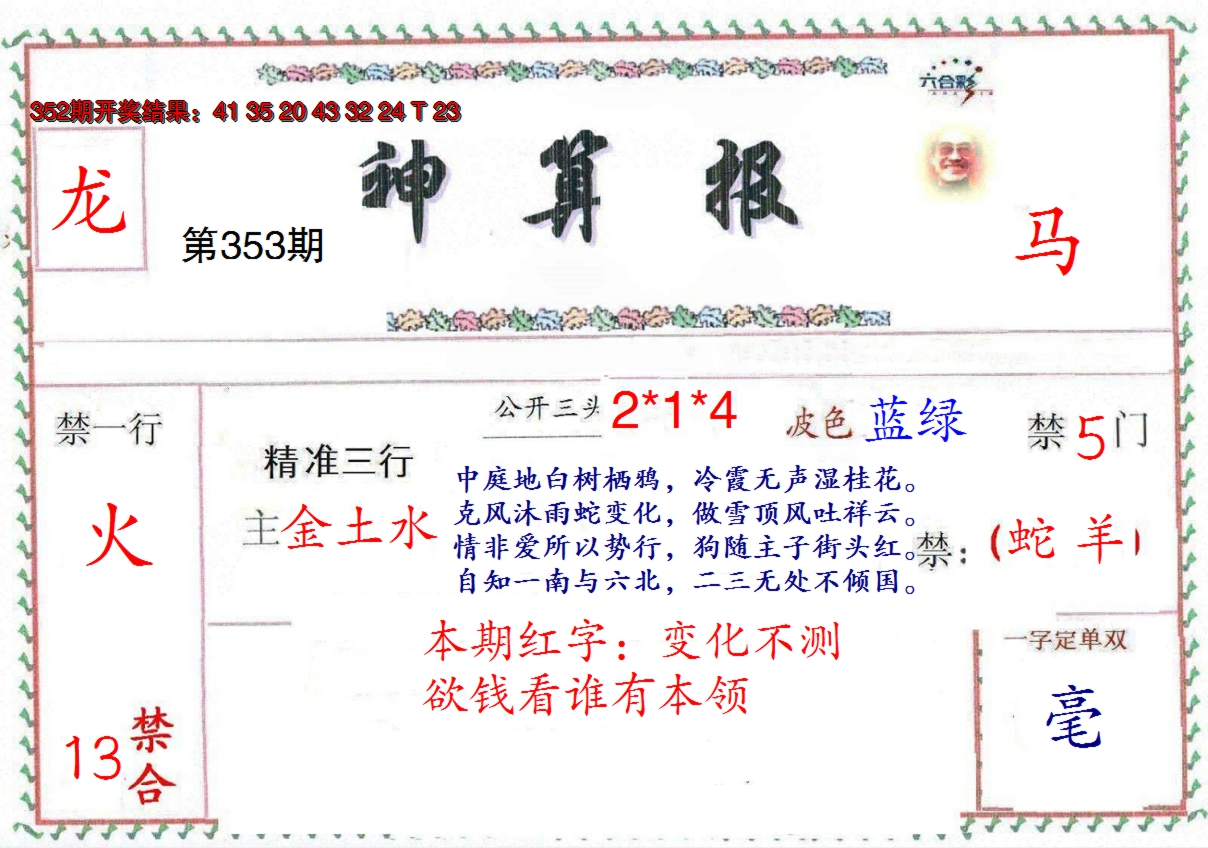 六合彩
352期开奖结果：41 35 20 43 32 24 T 23
龙
神算报
第353期
马
禁一行
火
13禁合
精准三行
主金土水
公开三头 2*1*4
波色 蓝绿
禁5门
中庭地白树栖鸦，冷霞无声湿桂花。
克风沐雨蛇变化，做雪顶风吐祥云。
情非爱所以势行，狗随主子街头红。
自知一南与六北，二三无处不倾国。
禁：（蛇 羊）
本期红字：变化不测
欲钱看谁有本领
一字定单双
毫